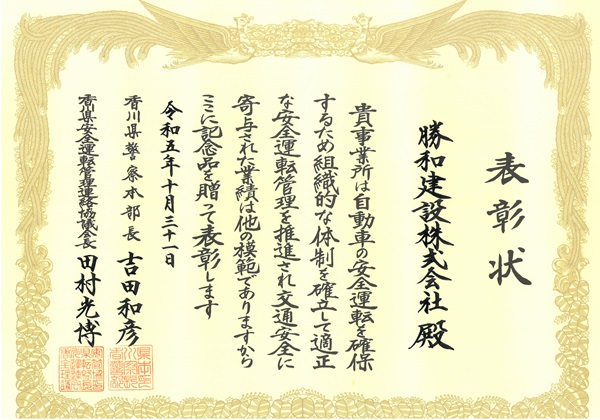 表彰状
勝和建設株式会社 殿
貴事業所は自動車の安全運転を確保
するため組織的な体制を確立して適正
な安全運転管理を推進され交通安全に
寄与された業績は他の模範でありますから
ここに記念品を贈って表彰します
令和五年十月三十一日
香川県警察本部長 吉田和彦
香川県安全運転管理連絡協議会長 田村光博